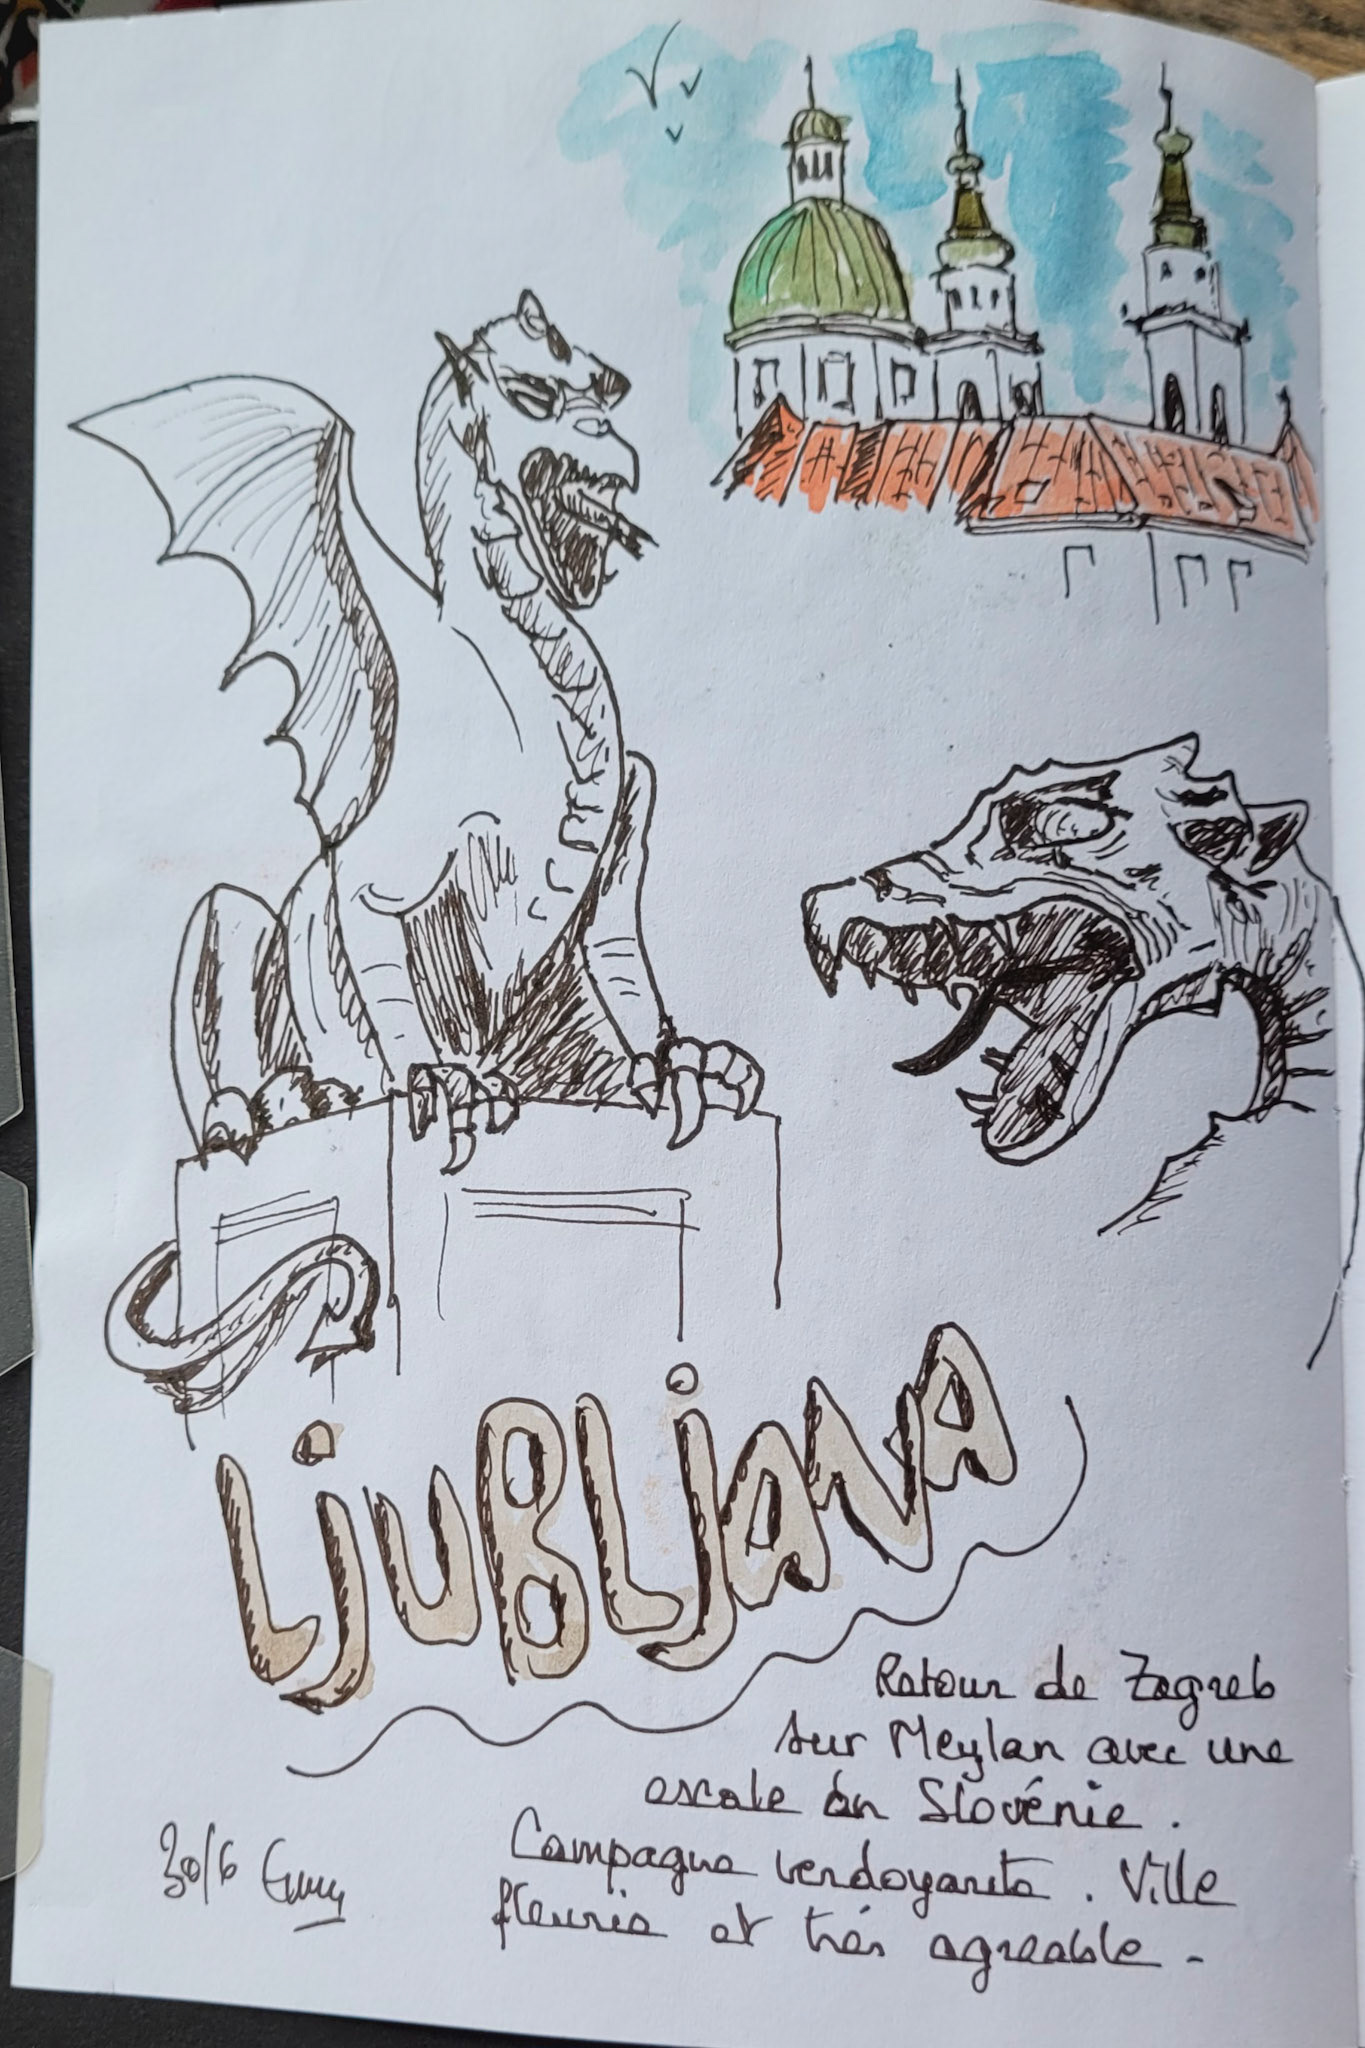 LjUBLjANA
Retour de Zagreb
sur Meylan avec une
escale en Slovénie.
Campagne verdoyante. Ville
fleurie et très agréable -
30/6